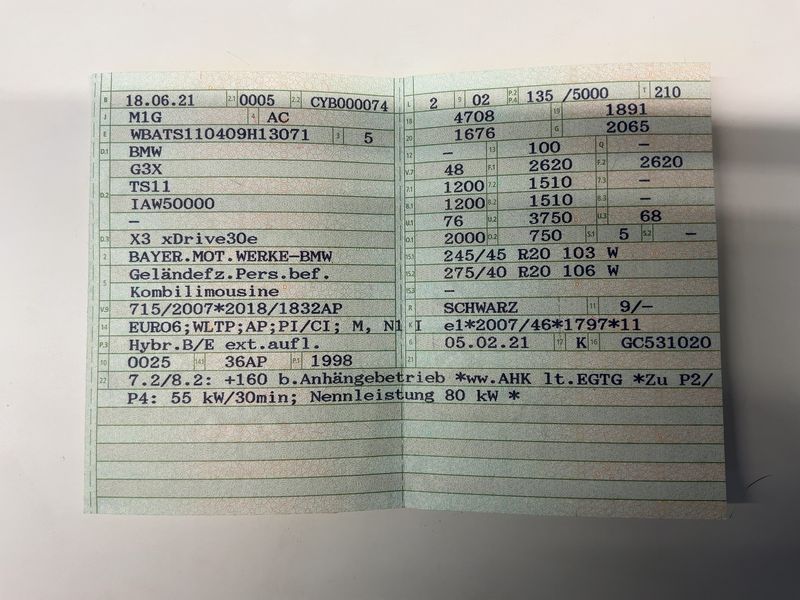 B 18.06.21 2.1 0005 2.2 CYB000074
J M1G 4 AC
E WBATS110409H13071 3 5
D.1 BMW
G3X
D.2 TS11
IAW50000
–
D.3 X3 xDrive30e
2 BAYER.MOT.WERKE-BMW
5 Geländefz.Pers.bef.
Kombilimousine
V.9 715/2007*2018/1832AP
14 EURO6;WLTP;AP;PI/CI; M, N1 I
P.3 Hybr.B/E ext.aufl.
10 0025 14.1 36AP P.1 1998
22 7.2/8.2: +160 b.Anhängebetrieb *ww.AHK lt.EGTG *Zu P2/
P4: 55 kW/30min; Nennleistung 80 kW *
L 2 9 02 P.2 P.4 135 /5000 T 210
18 4708 19 1891
20 1676 G 2065
12 – 13 100 Q –
V.7 48 F.1 2620 F.2 2620
7.1 1200 7.2 1510 7.3 –
8.1 1200 8.2 1510 8.3 –
U.1 76 U.2 3750 U.3 68
O.1 2000 O.2 750 S.1 5 S.2 –
15.1 245/45 R20 103 W
15.2 275/40 R20 106 W
15.3 –
R SCHWARZ 11 9/–
K e1*2007/46*1797*11
6 05.02.21 17 K 16 GC531020
21